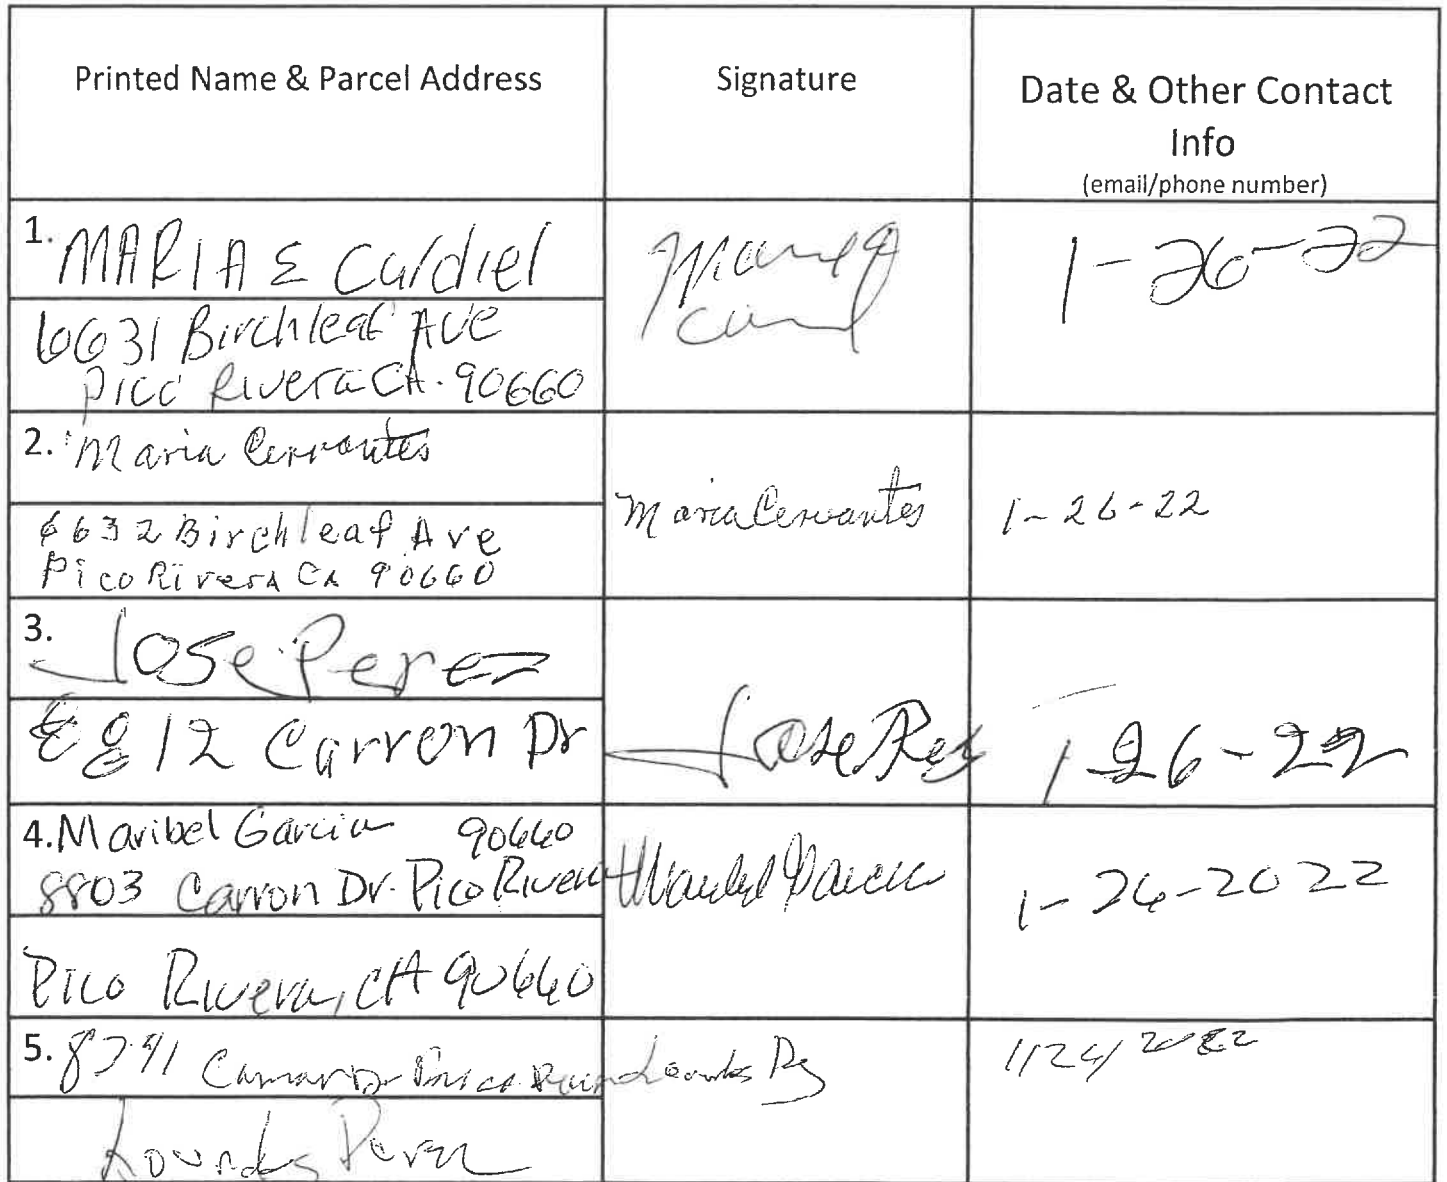 Printed Name & Parcel Address
Signature
Date & Other Contact
Info
(email/phone number)
1. MARIA E Curdiel
6631 Birchleaf AVE
Pico Rivera CA. 90660
Maria
1-26-22
2. Maria Cervantes
6632 Birchleaf Ave
Pico Rivera CA 90660
Maria Cervantes
1-26-22
3. Jose Perez
8812 Carron Dr
Jose
1 26-22
4. Maribel Garcia 90660
8803 Carron Dr. Pico Rivera
Pico Rivera, CA 90660
Maribel Garcia
1-26-2022
5. Dr
Lourdes Perez
Lourdes